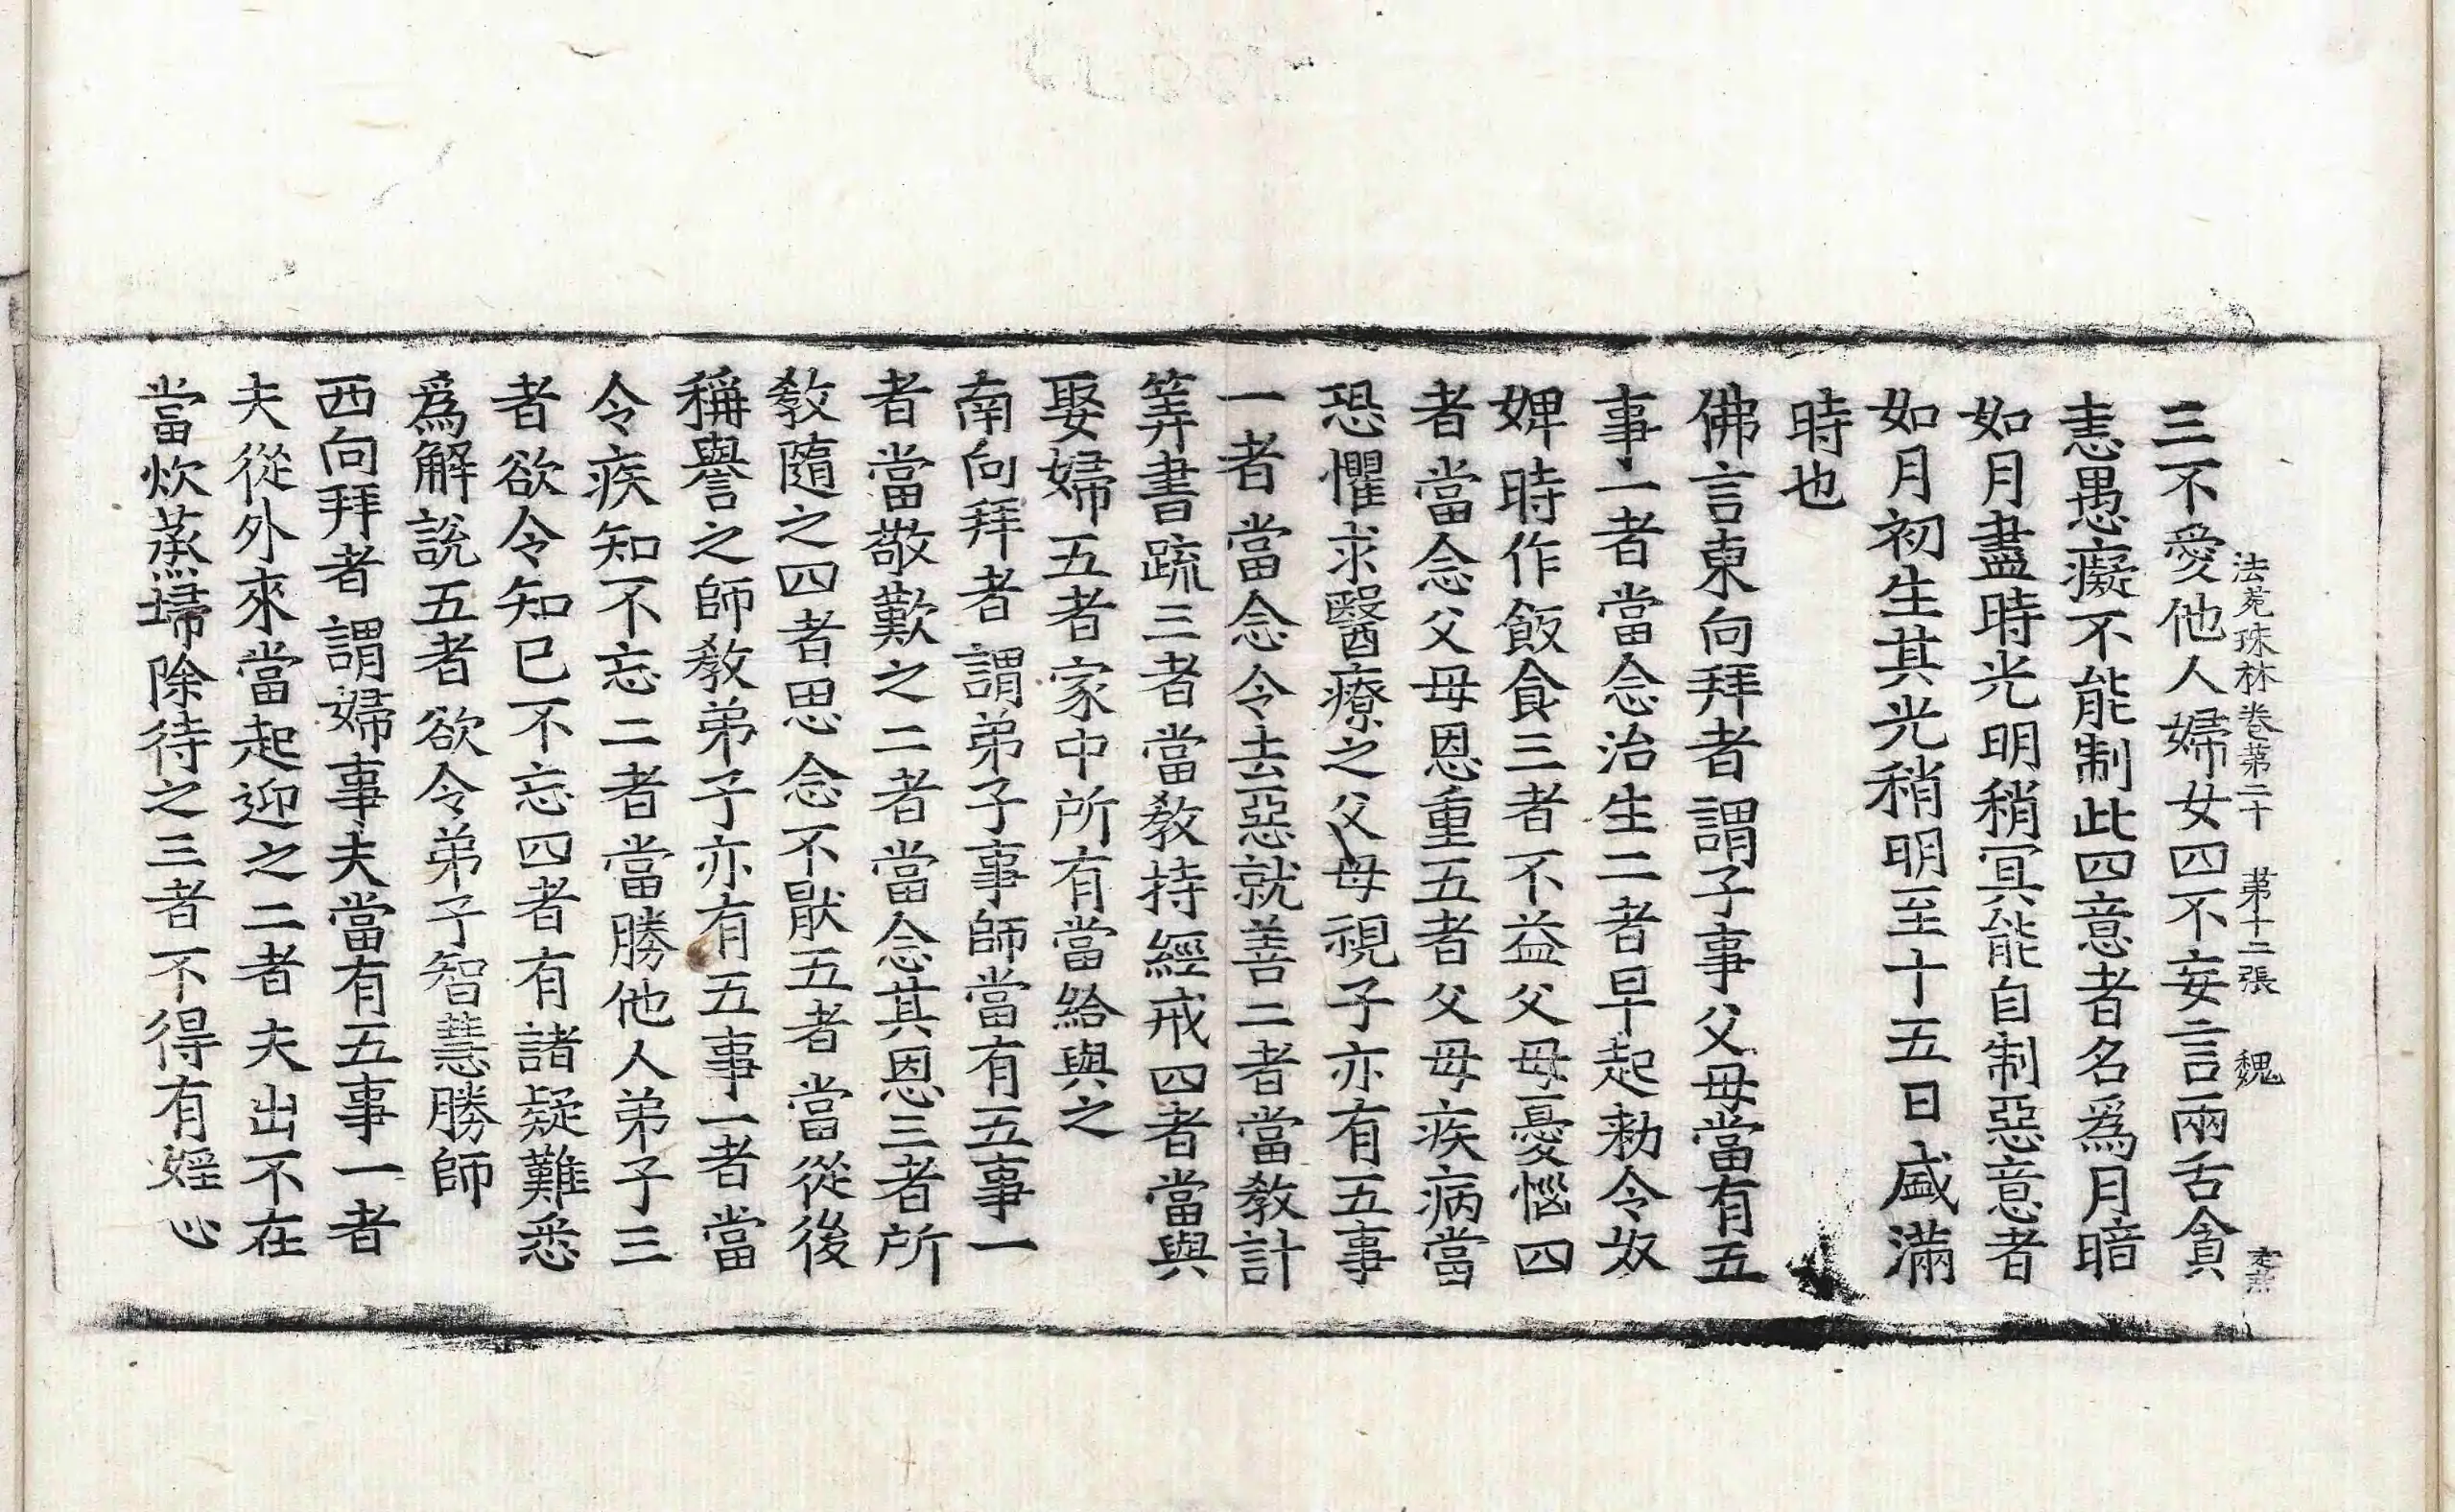 法苑珠林卷第二十　第十二張　魏
三不愛他人婦女四不妄言兩舌貪
恚愚癡不能制此四意者名爲月暗
如月盡時光明稍冥能自制惡意者
如月初生其光稍明至十五日盛滿
時也
佛言東向拜者謂子事父母當有五
事一者當念治生二者早起勑令奴
婢時作飯食三者不益父母憂惱四
者當念父母恩重五者父母疾病當
恐懼求醫療之父母視子亦有五事
一者當念令去惡就善二者當教計
筭書疏三者當教持經戒四者當與
娶婦五者家中所有當給與之
南向拜者謂弟子事師當有五事一
者當敬歎之二者當念其恩三者所
教隨之四者思念不猒五者當從後
稱譽之師教弟子亦有五事一者當
令疾知不忘二者當勝他人弟子三
者欲令知已不忘四者有諸疑難悉
爲解說五者欲令弟子智慧勝師
西向拜者謂婦事夫當有五事一者
夫從外來當起迎之二者夫出不在
當炊蒸掃除待之三者不得有婬心